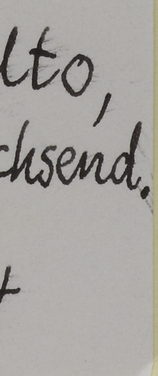 lto,
chsend.
t